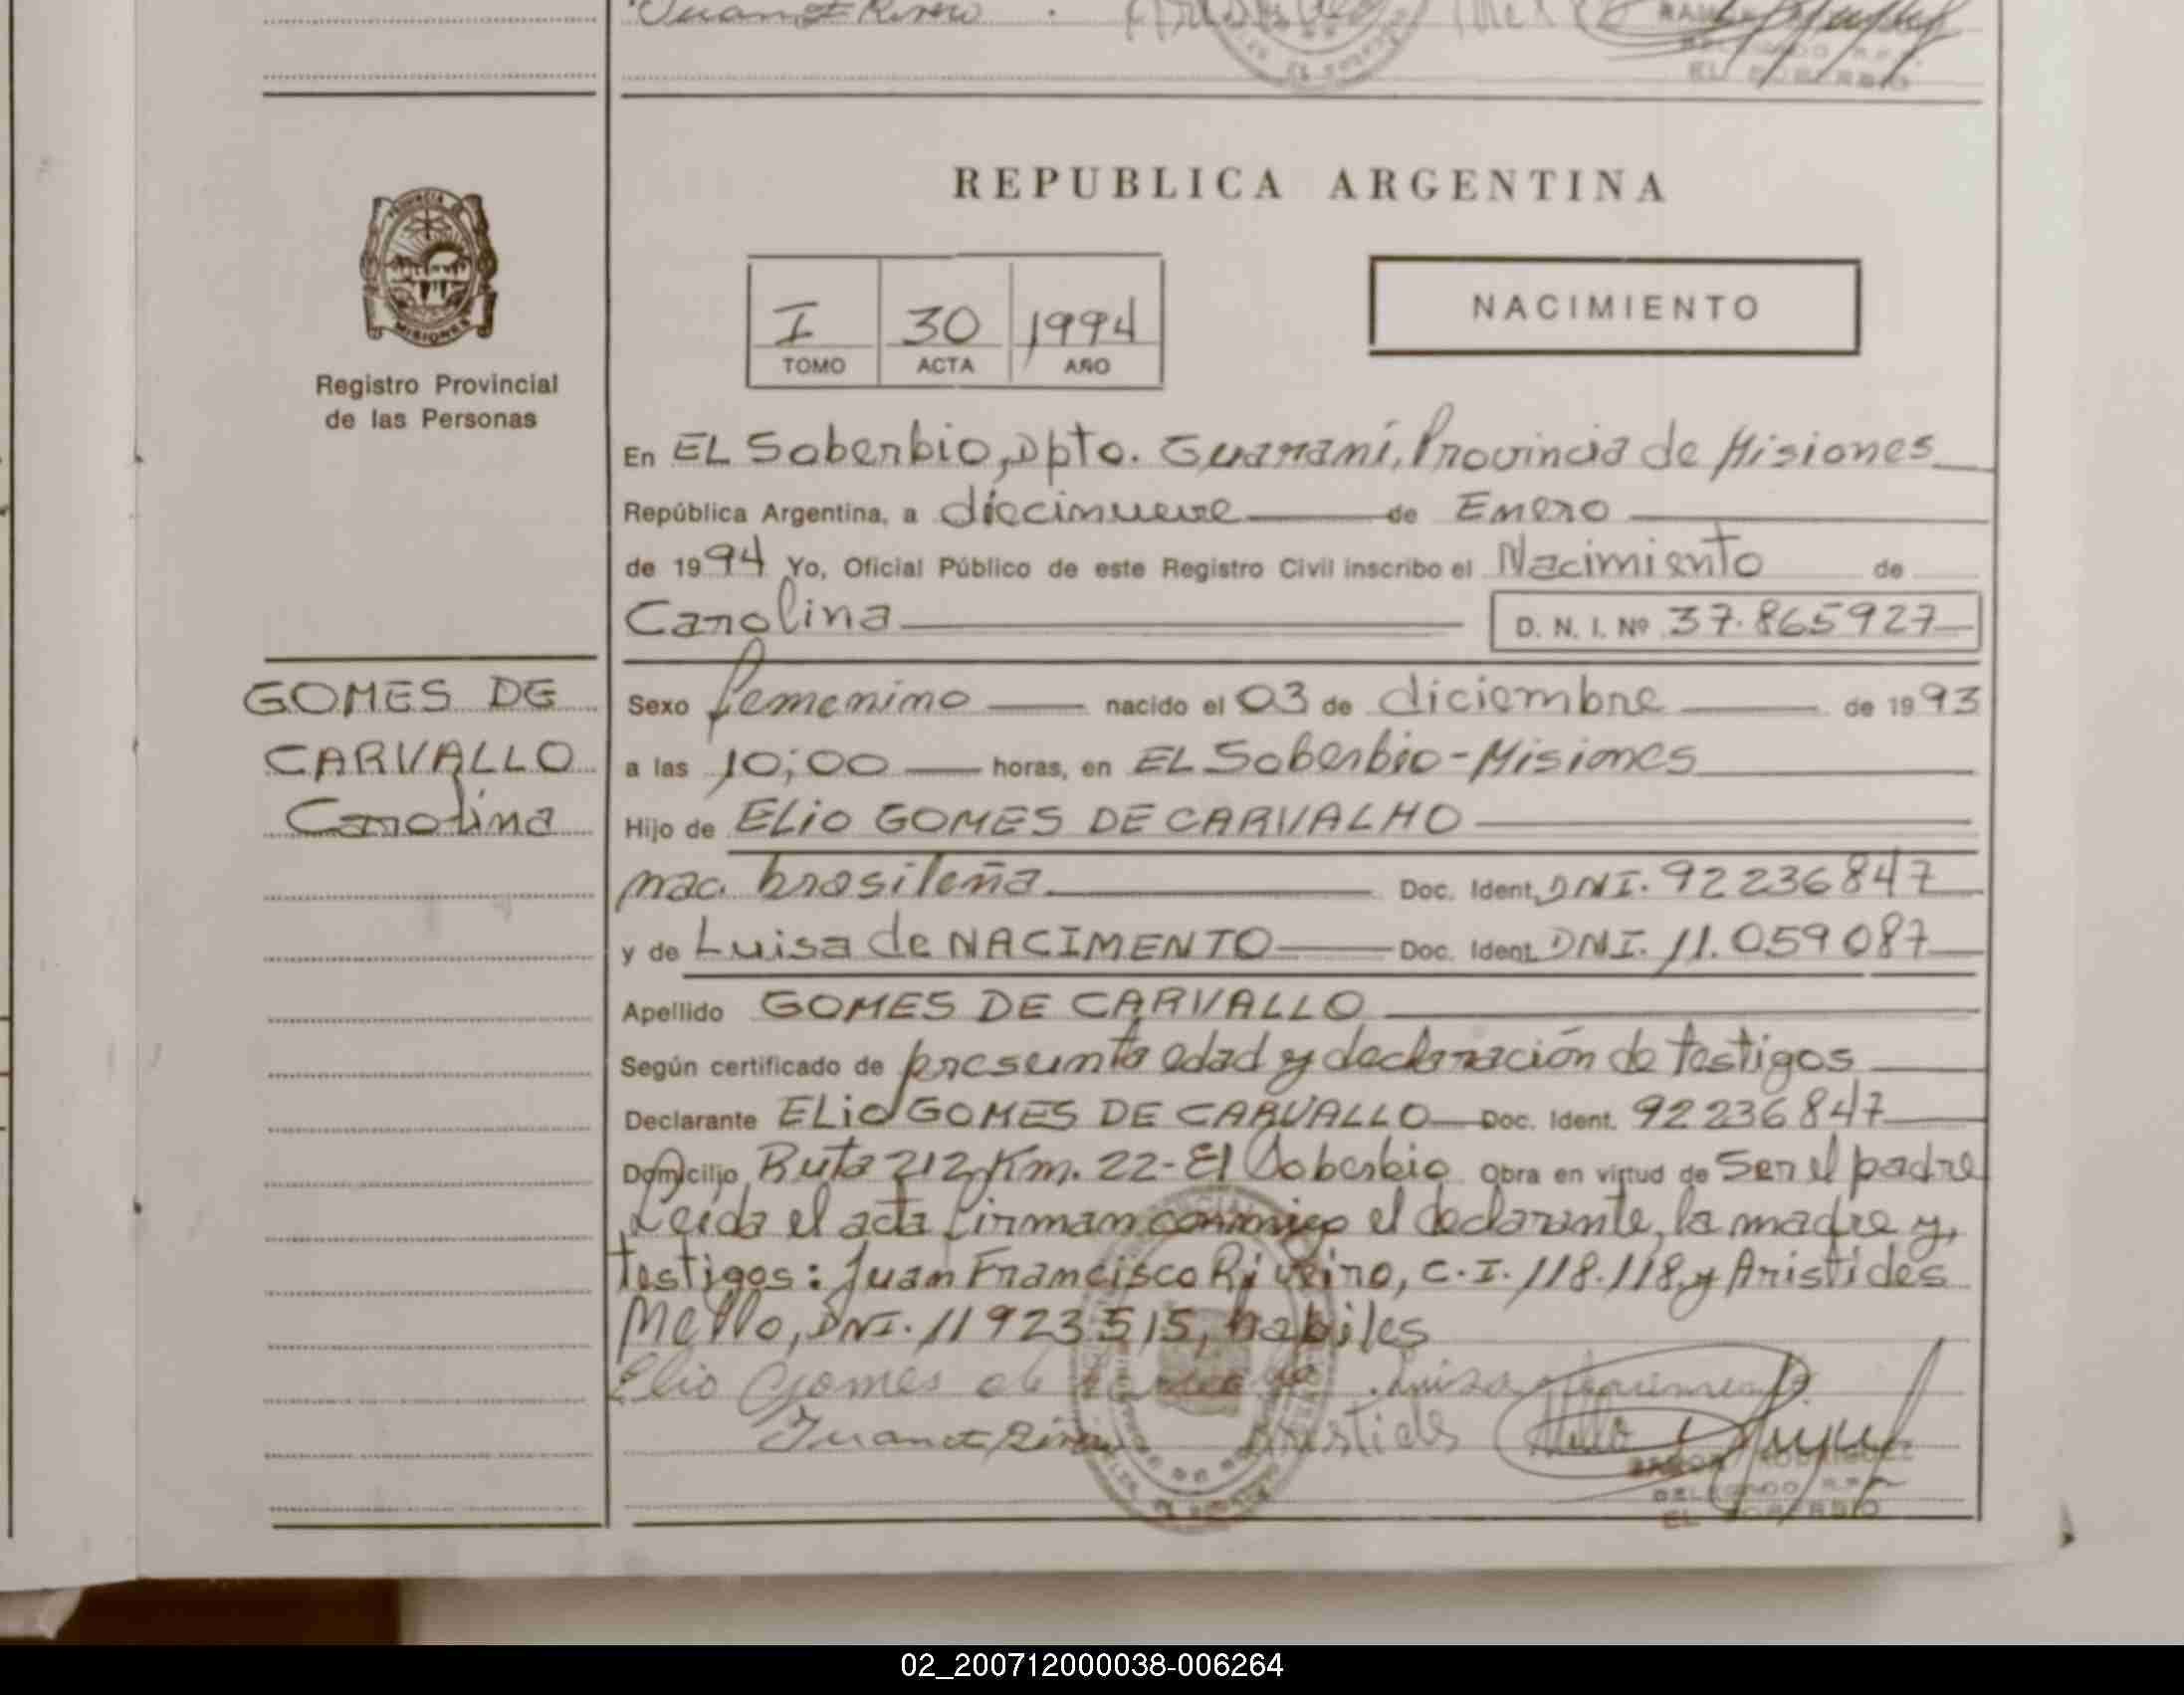 REPUBLICA ARGENTINA
PROVINCIA DE
MISIONES
Registro Provincial
de las Personas
I 30 1994
TOMO ACTA AÑO
NACIMIENTO
En EL Soberbio, Dpto. Guaraní, Provincia de Misiones
República Argentina, a diecinueve de Enero
de 1994 Yo, Oficial Público de este Registro Civil inscribo el Nacimiento de
Carolina D. N. I. Nº 37.865927
GOMES DE
CARVALLO
Carolina
Sexo femenino nacido el 03 de diciembre de 1993
a las 10;00 horas, en EL Soberbio-Misiones
Hijo de ELiO GOMES DE CARVALHO
nac. brasileña Doc. Ident. DNI. 92236847
y de Luisa de NACIMENTO Doc. Ident. DNI. 11.059087
Apellido GOMES DE CARVALLO
Según certificado de presunta edad y declaración de testigos
Declarante ELiO GOMES DE CARVALLO Doc. Ident. 92236847
Domicilio Ruta 212, Km. 22-El Soberbio Obra en virtud de Ser el padre
Leida el acta firman conmigo el declarante, la madre y,
testigos: Juan Francisco Riveiro, C.I. 118.118, y Aristides
Mello, DNI. 11923515, habiles
Elio Gomes de
Aristides Mello
DELEGADO
EL SOBERBIO
02_200712000038-006264